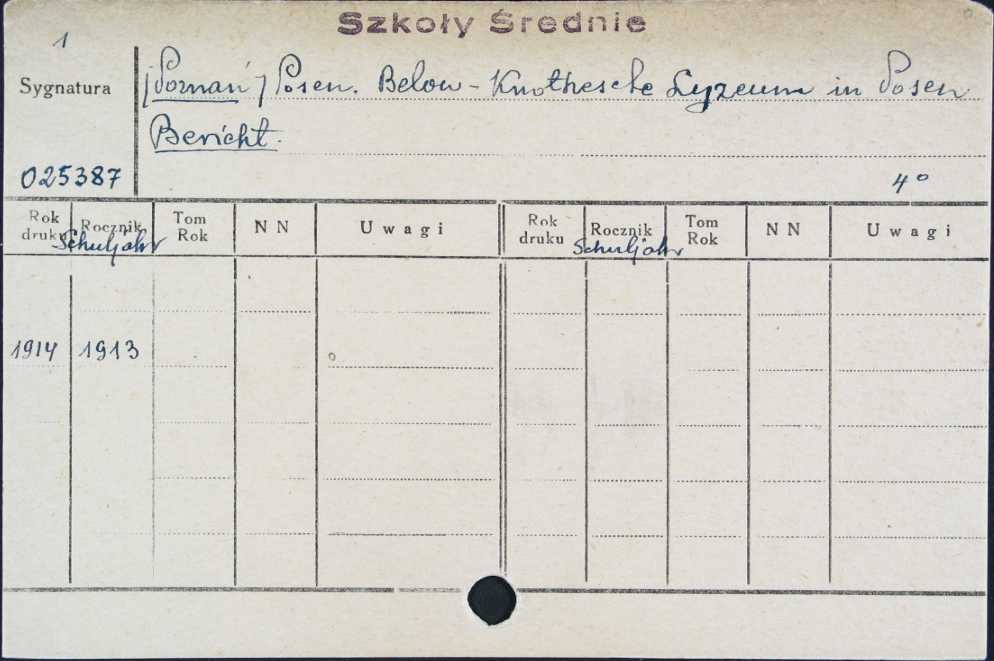 Szkoły Średnie
1
Sygnatura
[Poznań] Posen. Below-Knothesche Lyzeum in Posen
Bericht.
025387
4°
Rok druku Rocznik Tom Rok NN Uwagi Rok druku Rocznik Tom Rok NN Uwagi
Schuljahr Schuljahr
1914 1913